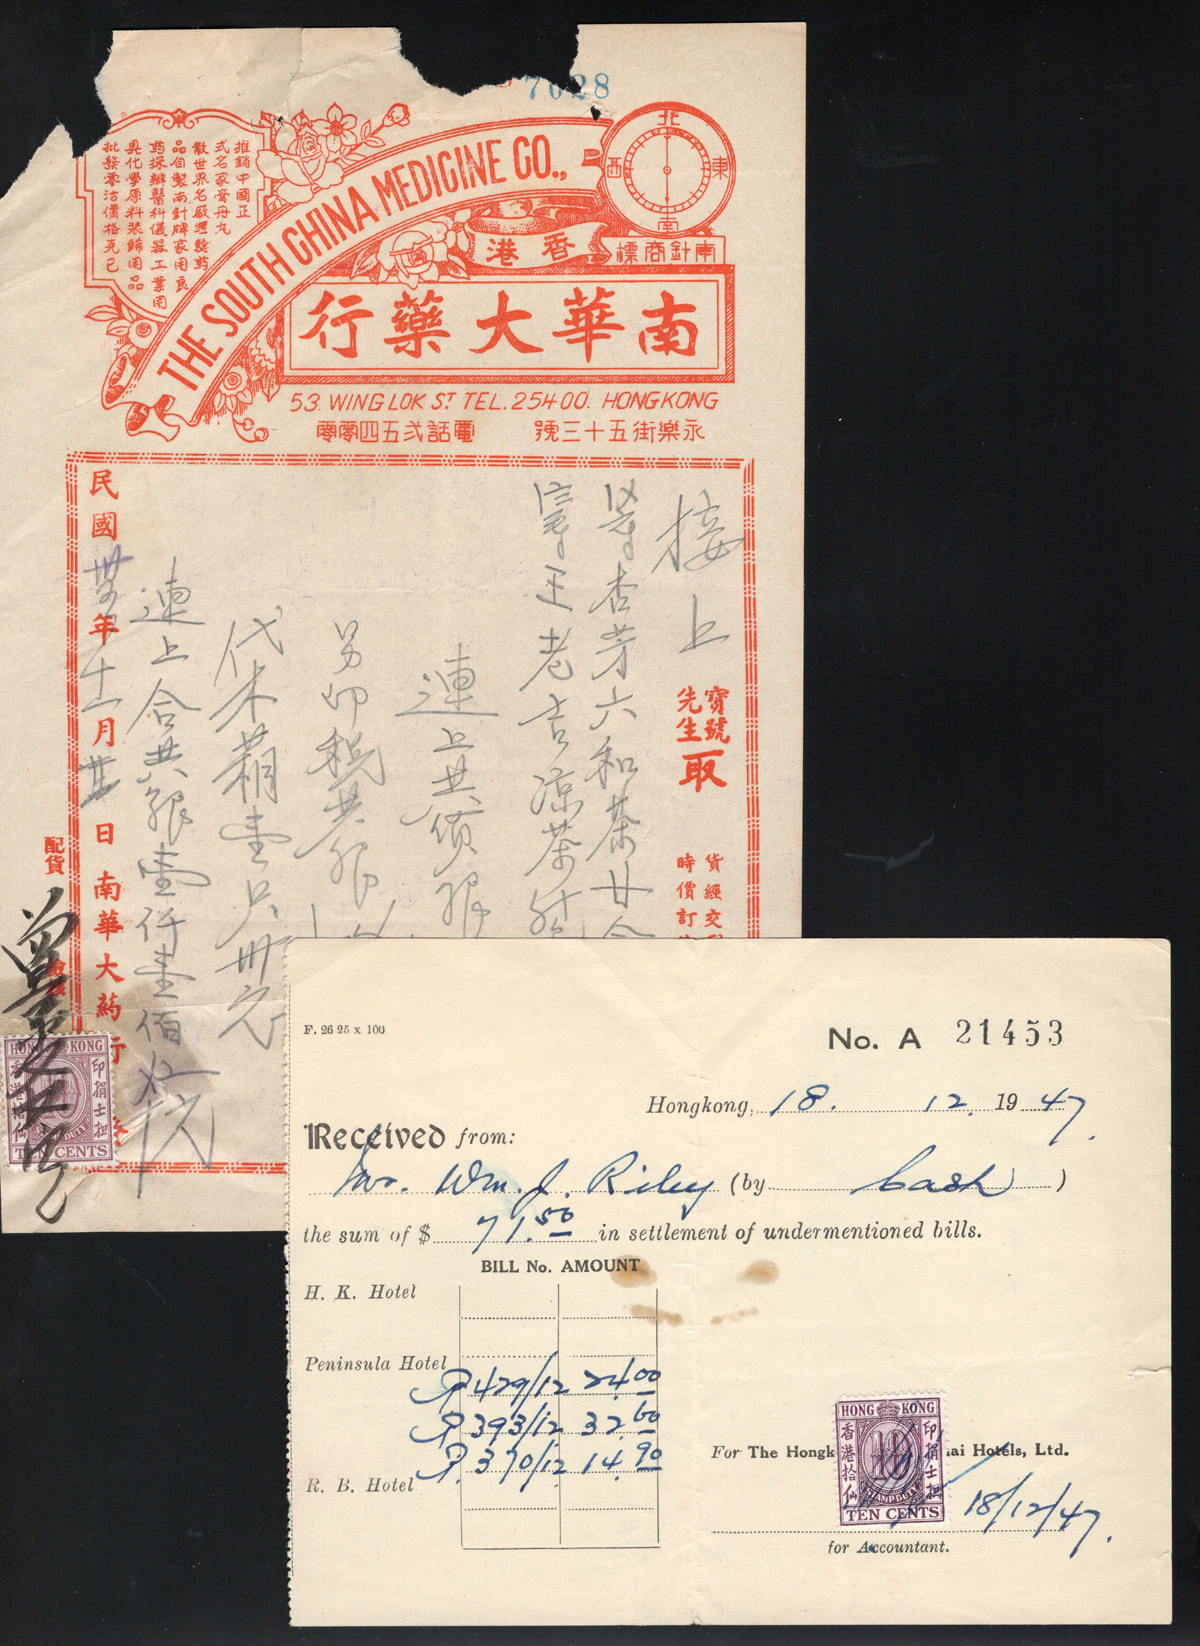 7028
推銷中國正
式名家膏丹丸
散世界名廠理發药
品自製南針牌家用良
药採辦醫科儀器工業用
具化學原料裝飾用品
批發零沽價格克己
THE SOUTH CHINA MEDICINE CO.,
北
東
西
南
南針商標
香港
南華大藥行
53. WING LOK ST. TEL. 25400. HONGKONG
永樂街五十三號
電話弍五四零零
接上
寶號
先生
取
貨經交
時價訂
杏芽六和茶廿
王老吉涼茶
連上共價銀
另印稅共銀
代木箱壹只卅元
連上合共銀壹仟壹佰
民國 年 月 日 南華大葯行
配貨
HONG KONG
香港拾仙
印捐士担
TEN CENTS
F. 26 25 x 100
No. A 21453
Hongkong, 18. 12. 1947.
Received from:
Mr. Wm. J. Riley (by Cash)
the sum of $ 71.50 in settlement of undermentioned bills.
BILL No. AMOUNT
H. K. Hotel
Peninsula Hotel
P 429/12 24.00
P 393/12 32.60
P. 370/12 14.90
R. B. Hotel
HONG KONG
香港拾仙
印捐士担
10
STAMP DUTY
TEN CENTS
For The Hongk ai Hotels, Ltd.
18/12/47.
for Accountant.